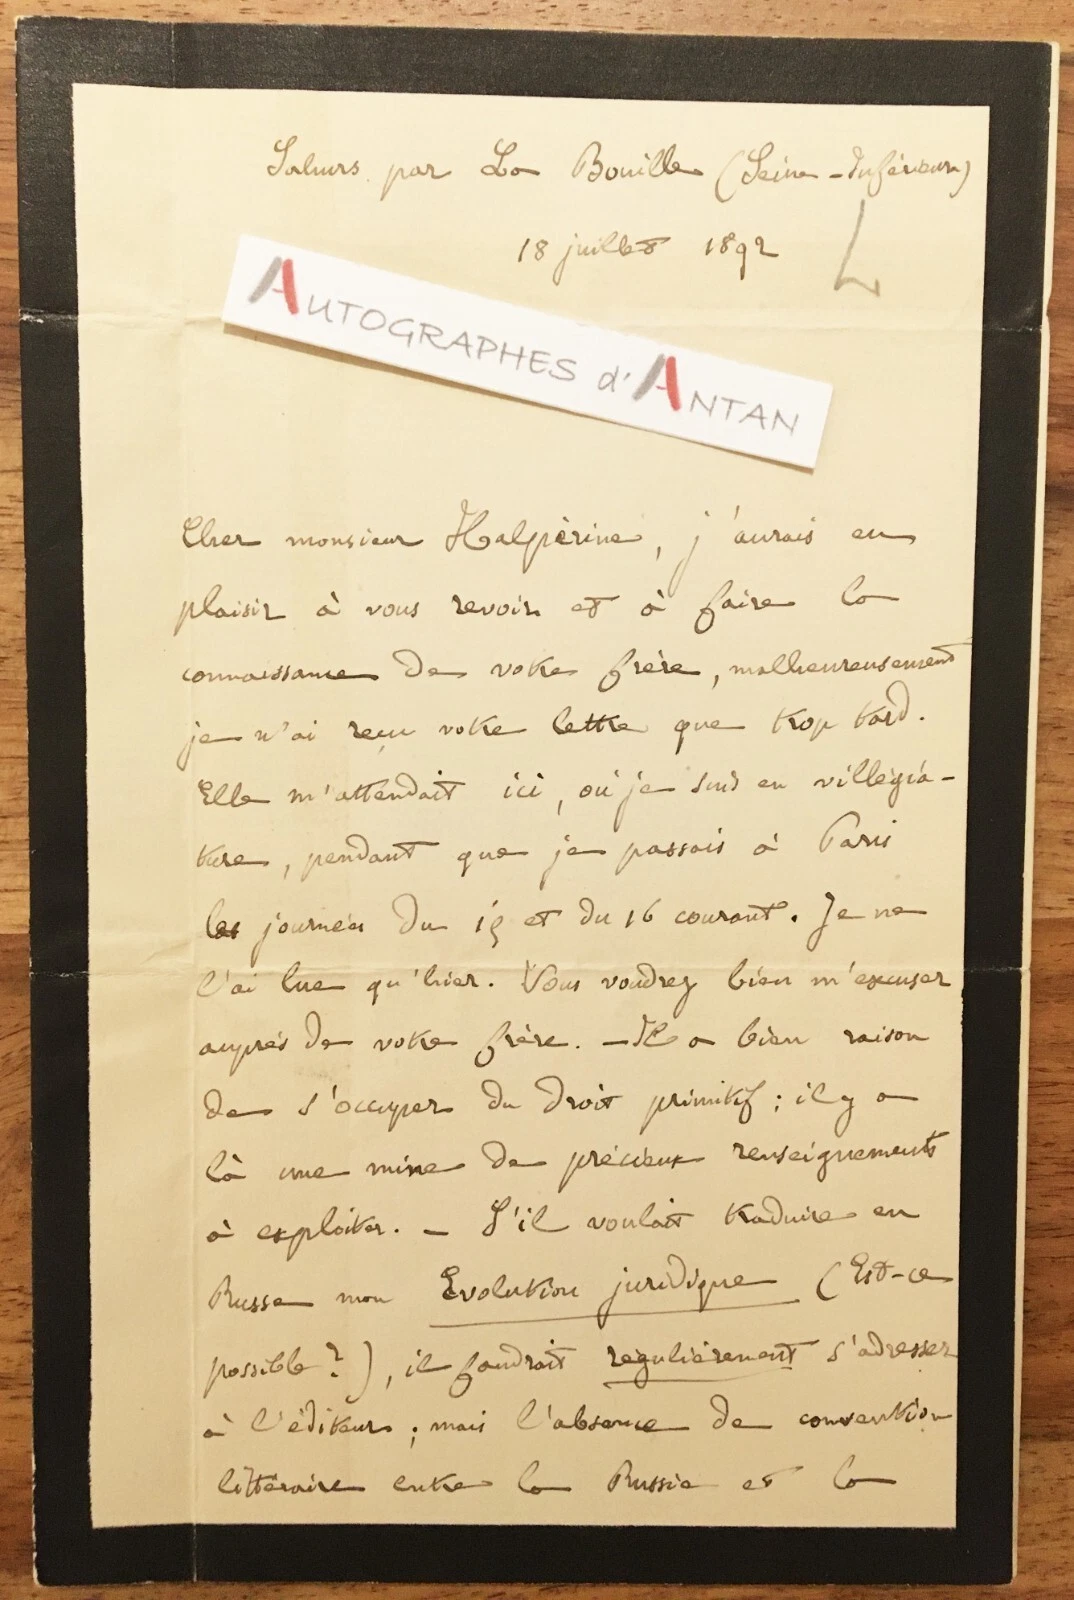 Sahurs par La Bouille (Seine-Inférieure)
18 juillet 1892
AUTOGRAPHES d'ANTAN
Cher monsieur Halpérine, j'aurais eu
plaisir à vous revoir et à faire la
connaissance de votre frère, malheureusement
je n'ai reçu votre lettre que trop tard.
Elle m'attendait ici, où je suis en villégia-
ture, pendant que je passais à Paris
les journées du 15 et du 16 courant. Je ne
l'ai lue qu'hier. Vous voudrez bien m'excuser
auprès de votre frère. - Il a bien raison
de s'occuper du droit primitif ; il y a
là une mine de précieux renseignements
à exploiter. - S'il voulait traduire en
Russe mon Evolution juridique (Est-ce
possible ?), il faudrait régulièrement s'adresser
à l'éditeur ; mais l'absence de convention
littéraire entre la Russie et la